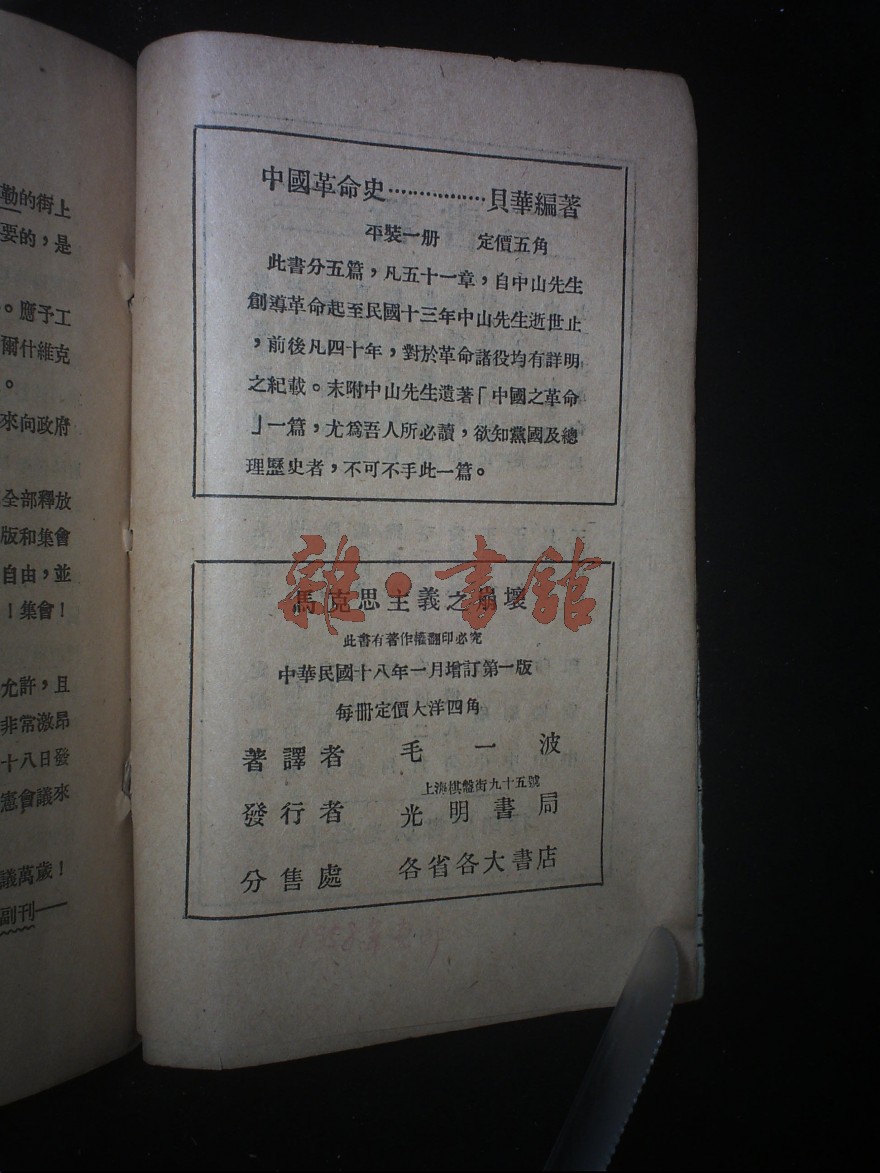 勒的街上
要的，是
。應予工
爾什維克
。
來向政府
全部釋放
版和集會
自由，並
！集會！
允許，且
非常激昂
十八日發
憲會議來
議萬歲！
副刊——
中國革命史················貝華編著
平裝一册　定價五角
此書分五篇，凡五十一章，自中山先生
創導革命起至民國十三年中山先生逝世止
，前後凡四十年，對於革命諸役均有詳明
之紀載。末附中山先生遺著「中國之革命
」一篇，尤爲吾人所必讀，欲知黨國及總
理歷史者，不可不手此一篇。
雜·書館
馬克思主義之崩壞
此書有著作權翻印必究
中華民國十八年一月增訂第一版
每冊定價大洋四角
著譯者　毛一波
上海棋盤街九十五號
發行者　光明書局
分售處　各省各大書店